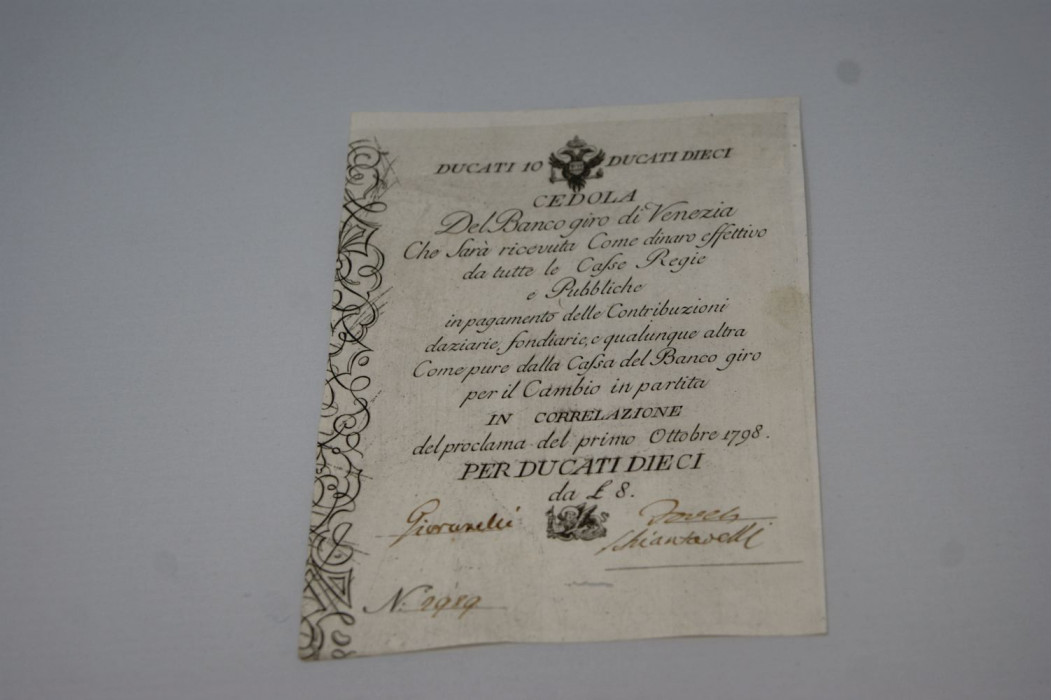 DUCATI 10 DUCATI DIECI
CEDOLA
Del Banco giro di Venezia
Che Sarà ricevuta Come dinaro effettivo
da tutte le Caſse Regie
e Pubbliche
in pagamento delle Contribuzioni
daziarie, fondiarie, e qualunque altra
Come pure dalla Caſsa del Banco giro
per il Cambio in partita
IN CORRELAZIONE
del proclama del primo Ottobre 1798.
PER DUCATI DIECI
da £ 8.
Giovanelli
Schiantarelli
N.